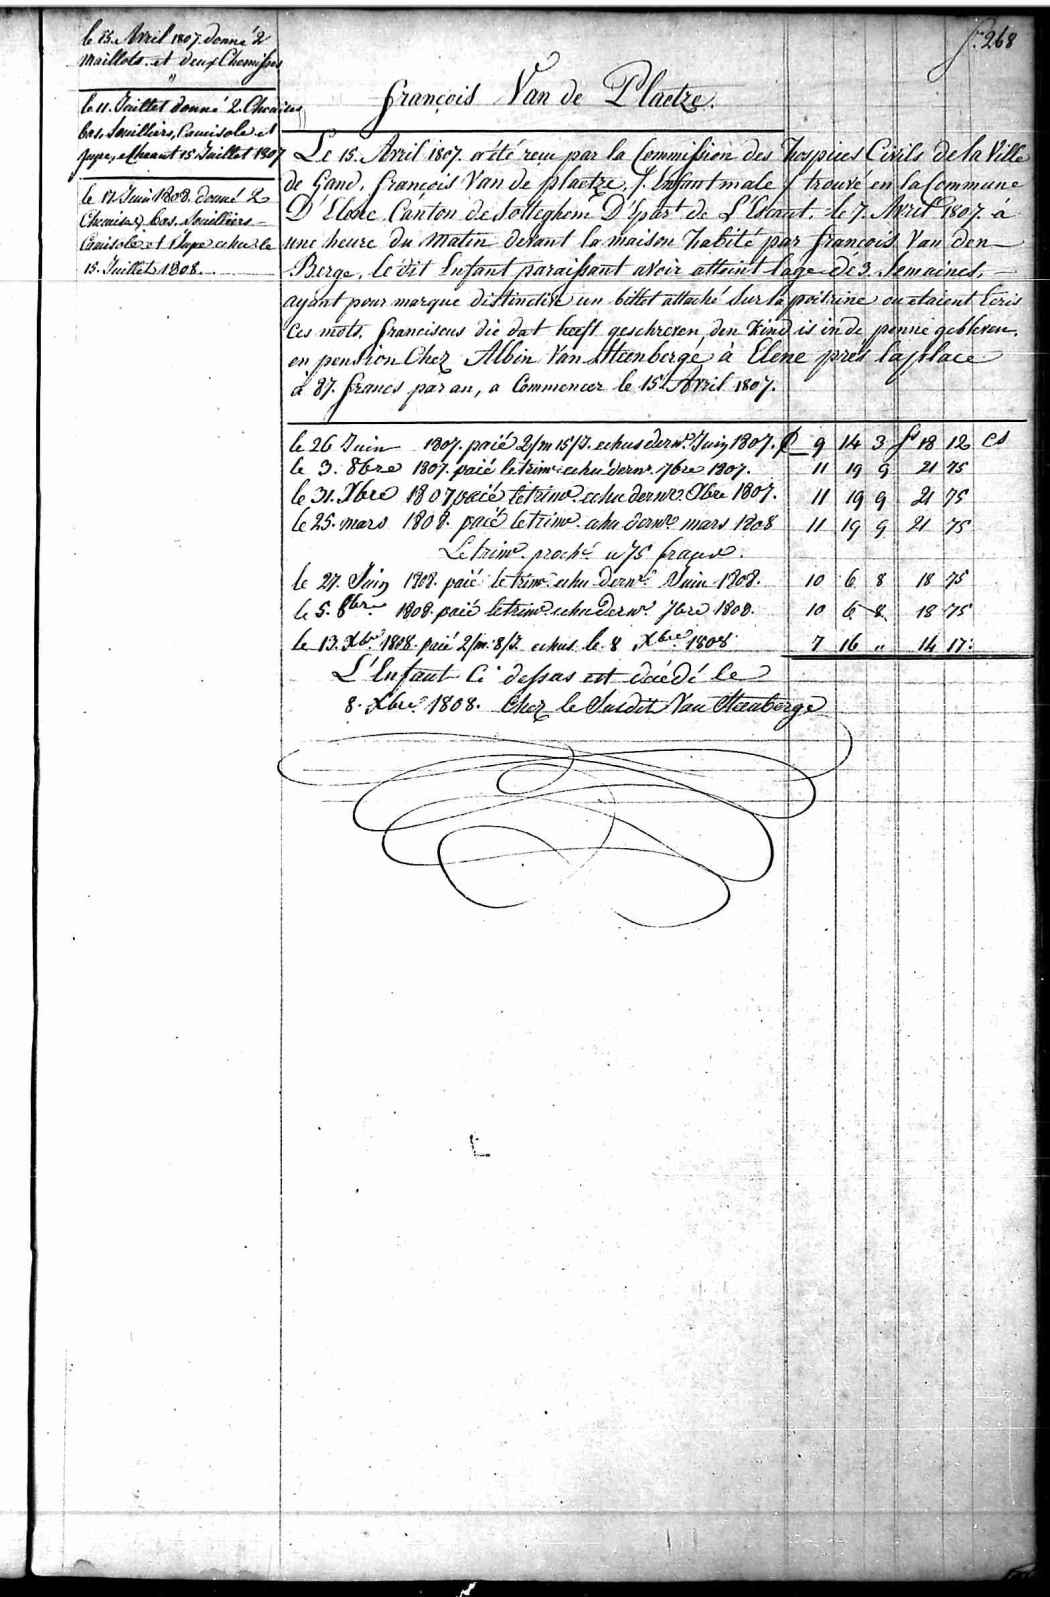 f. 268
le 15. Avril 1807. donné 2
maillots. et deux Chemises
"
le 11. Juillet donné 2. Chemises
bas, Souilliers, Camisole et
jupe, echeant 15 Juillet 1807
le 17 Juin 1808. donné 2
Chemises, bas. Souilliers
Camisole et Jupe echu le
15. Juillet 1808.
François Van de Plaetze.
Le 15. Avril 1807. a été reçu par la Commission des hospices Civils de la Ville
de Gand. François Van de plaetze. f. Enfant male f trouvé en la Commune
D'Elene Canton de Sotteghem D'épart. de L'Escaut. le 7. Avril 1807. á
une heure du Matin devant la maison habité par François Van den
Berge, le dit Enfant paraissant avoir atteint lage de 3. Semaines.
ayant pour marque distinctive un billet attaché Sur la poitrine ou etaient Ecris
Ces mots. franciscus die dat heeft geschreven, den Kind is in de penne gebleven.
en pension Chez Albin Van Steenberge á Elene prés la place
á 87. francs par an, a Commencer le 15 Avril 1807.
le 26 Juin 1807. paié 2/m 15/J. echus dern.e Juin 1807. £ 9 14 3 fs 18 12 cs
le 3. 8bre 1807. paié le trim.e echu dern.e 7bre 1807. 11 19 9 21 75
le 31. Xbre 1807 paié le trim.e echu dern.e Xbre 1807. 11 19 9 21 75
le 25. mars 1808. paié le trim.e echu dern.e mars 1808 11 19 9 21 75
Le trim.e proch.e a 75 francs.
le 27. Juin 1808. paié le trim.e echu dern.e Juin 1808. 10 6 8 18 75
le 5. 8bre 1808. paié le trim.e echu dern.e 7bre 1808. 10 6 8 18 75
le 13. Xbre 1808. paié 2/m. 8/J. echus le 8 Xbre 1808 7 16 " 14 17:
L'Enfant Ci dessus est décédé le
8. Xbre 1808. Chez le Susdit Van Steenberge